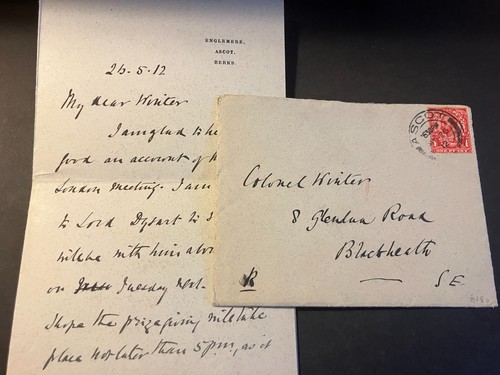 ENGLEMERE,
ASCOT,
BERKS.
26-5-12
My dear Winter
I am glad to he
good an account of
London meeting. I am
to Lord Dysart to
with him
on Tuesday next.
I hope the prizegiving will take
place not later than 5 p.m., as it
Colonel Winter
8 Glenluce Road
Blackheath
S E
ASCOT